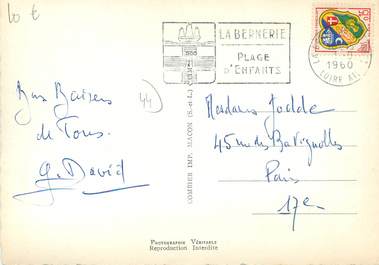 10 €
LA BERNERIE
PLAGE
D'ENFANTS
1960
LOIRE
Bons Baisers
de Tous.
G. David
44
COMBIER IMP. MACON (S.-et-L.)
Mesdames Jodde
45 rue des Batignolles
Paris
17e
Photographie Véritable
Reproduction Interdite